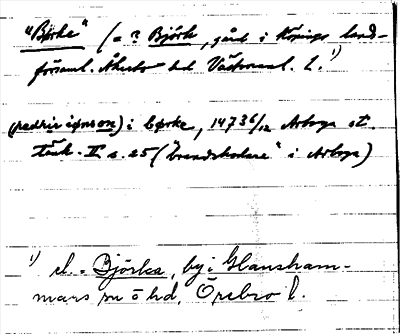 "Børke" (= ? Björk, gård i Köpings land-
församl. Åkerbo hd Västmanl. l. 1)
(pedhir iønson) i børke, 1473 6/12 Arboga st.
tänk. II s. 25 ("brandskadare" i Arboga)
1) el. = Björka, by i Glansham-
mars sn o hd, Örebro l.